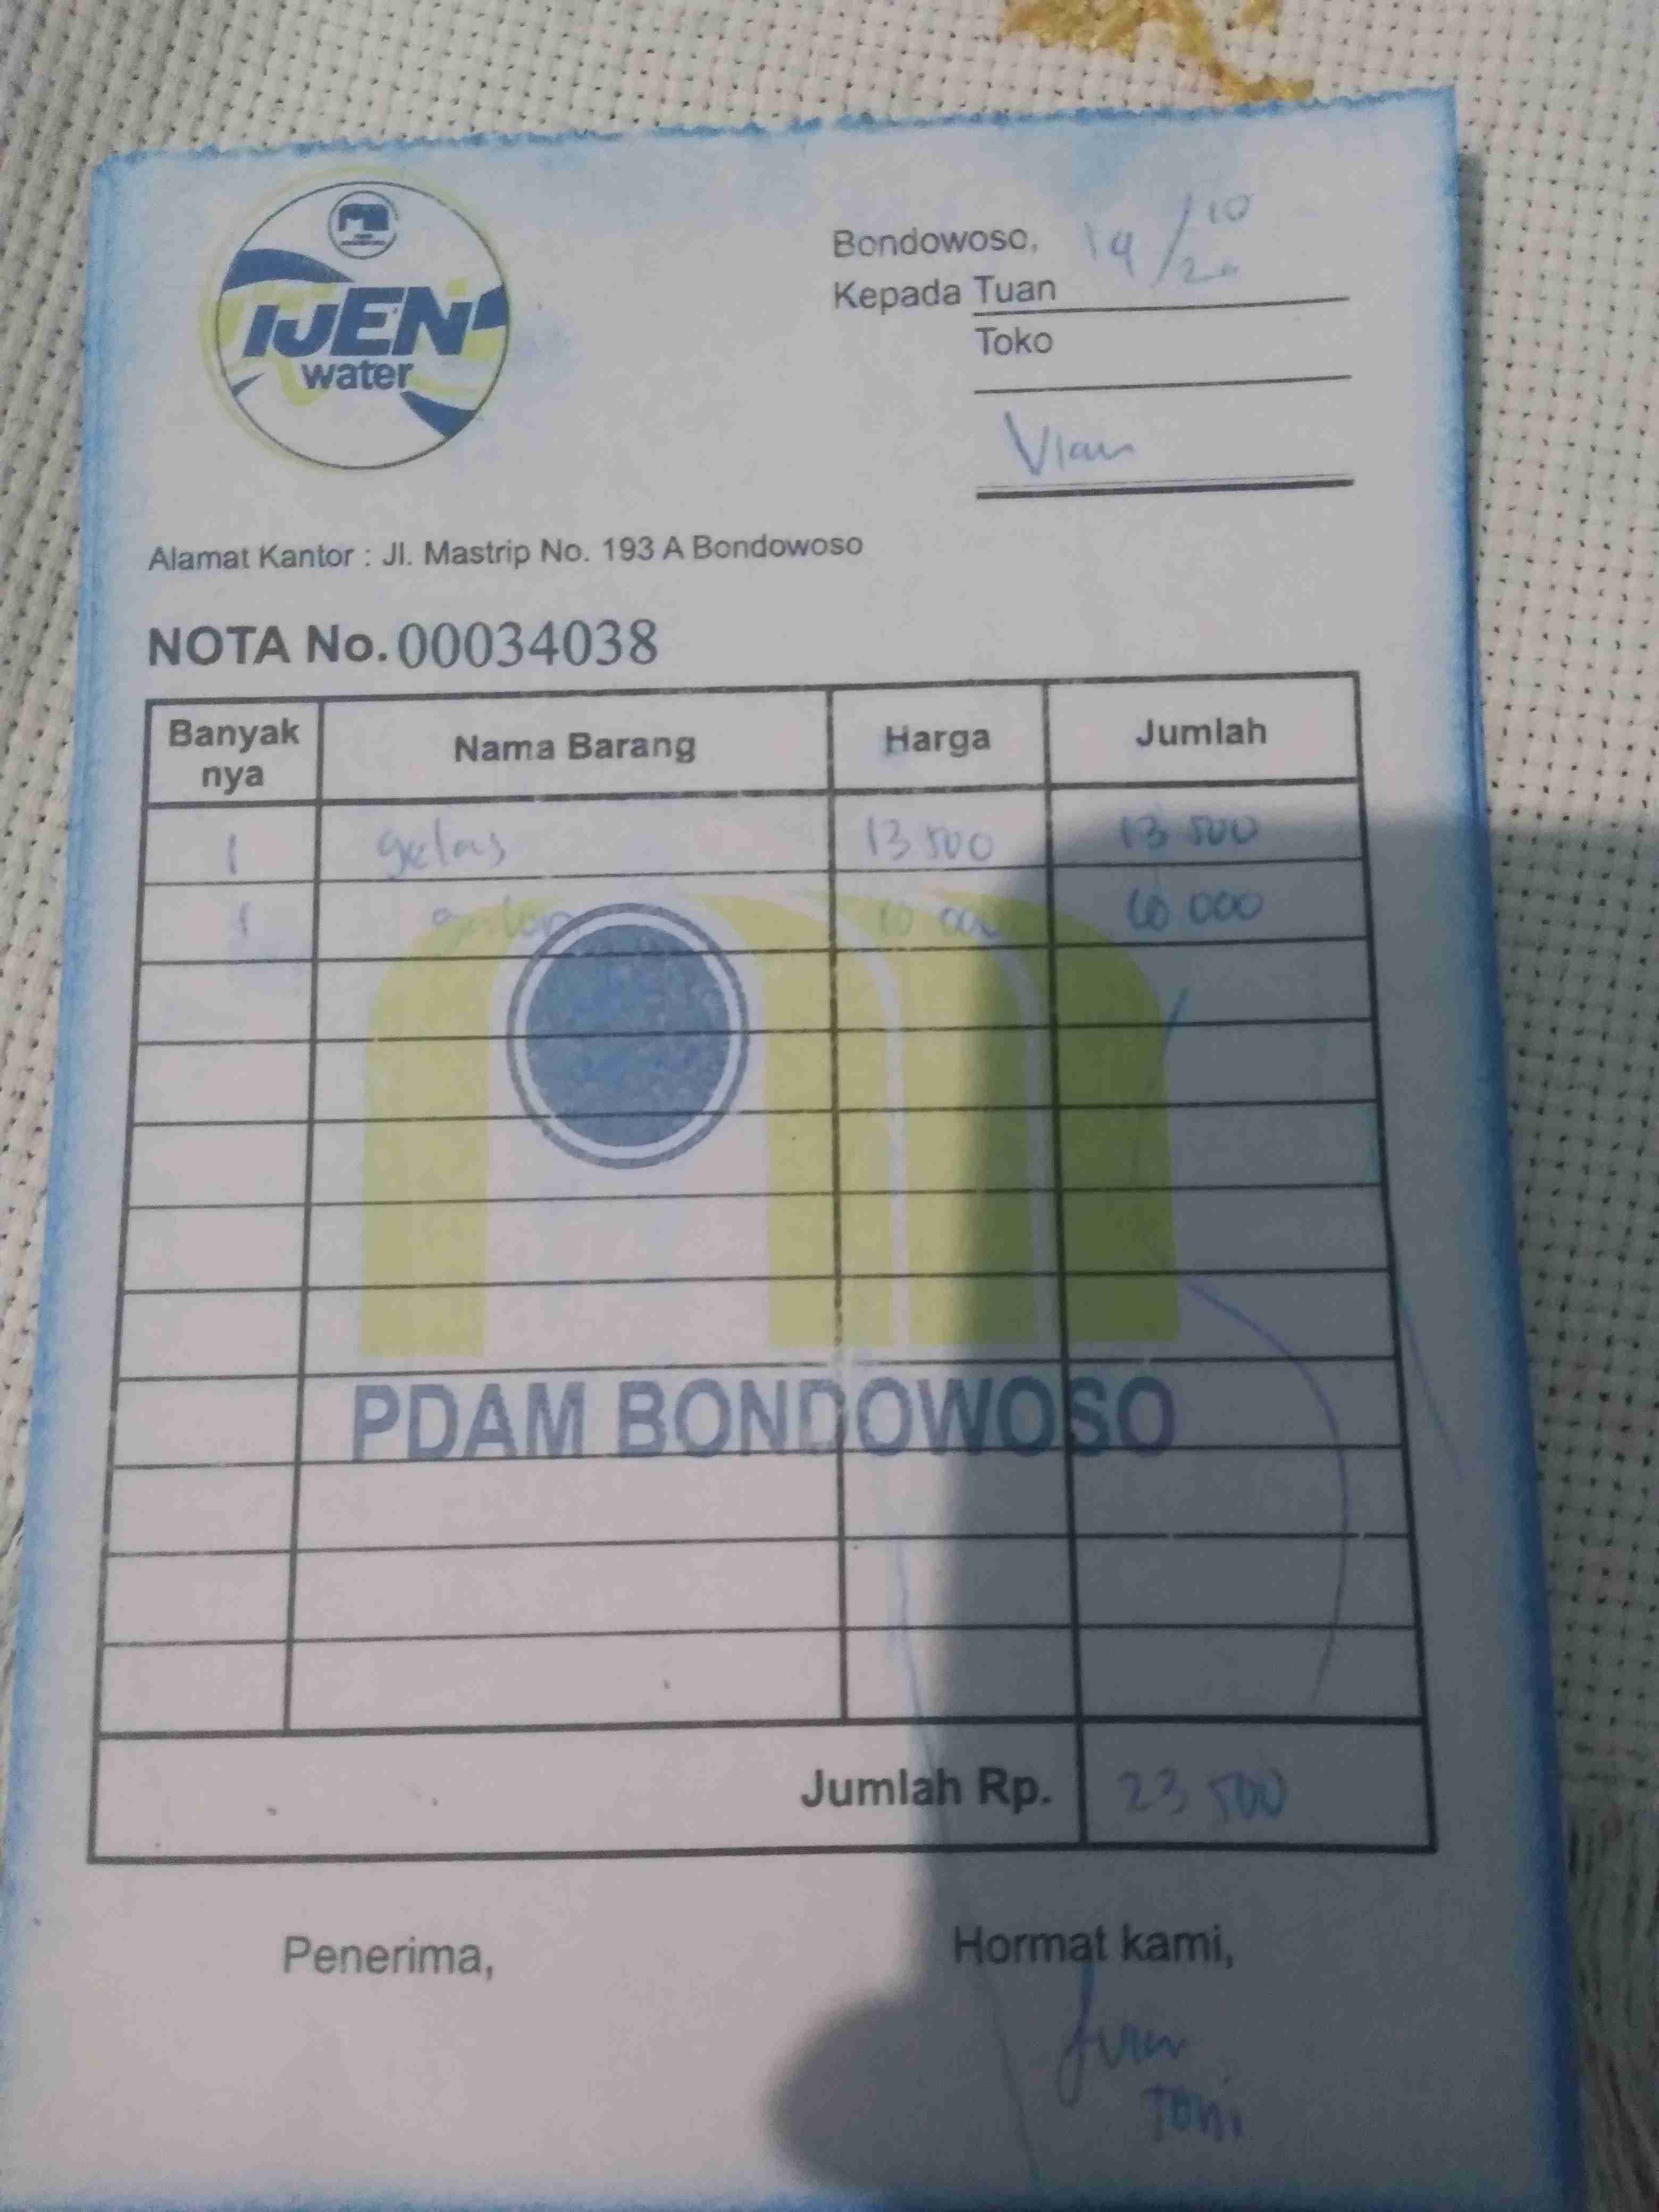 IJEN
water
Bondowoso, 19/10/20
Kepada Tuan
Toko
Vian
Alamat Kantor : Jl. Mastrip No. 193 A Bondowoso
NOTA No. 00034038
Banyak nya Nama Barang Harga Jumlah
1 gelas 13 500 13 500
1 galon 10 000 10 000
PDAM BONDOWOSO
Jumlah Rp. 23 500
Penerima, Hormat kami,
Toni